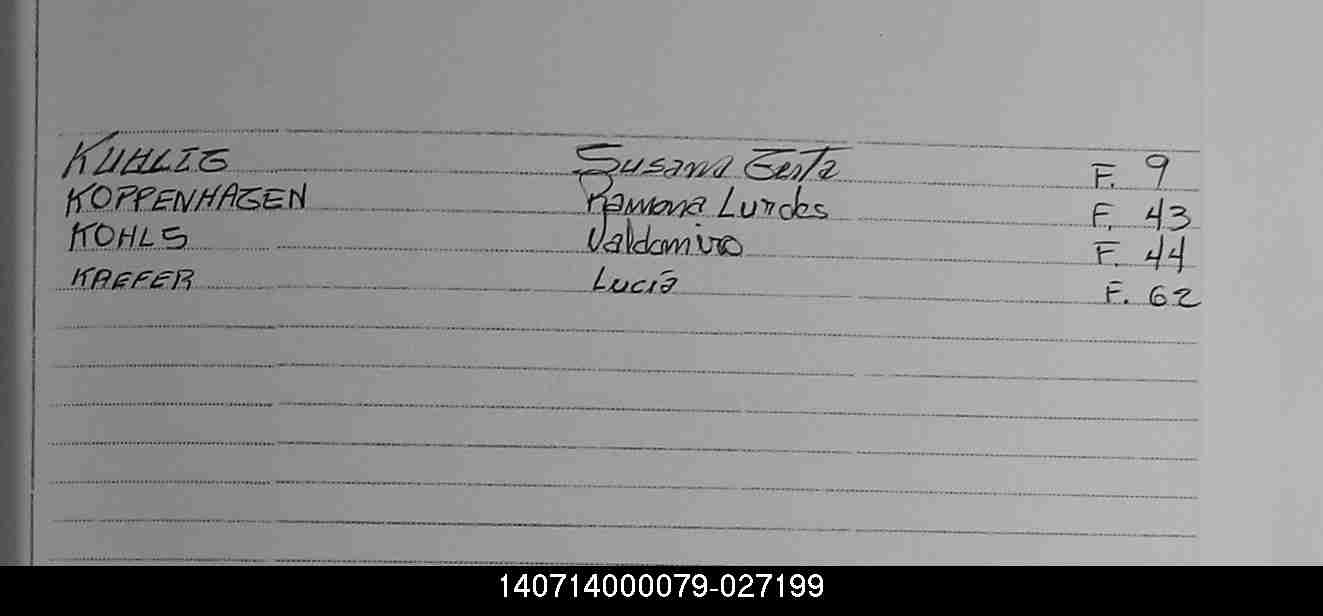 KUHLIG Susana Gerta F. 9
KOPPENHAGEN Ramona Lurdes F. 43
KOHLS Valdomiro F. 44
KAEFER Lucía F. 62
140714000079-027199